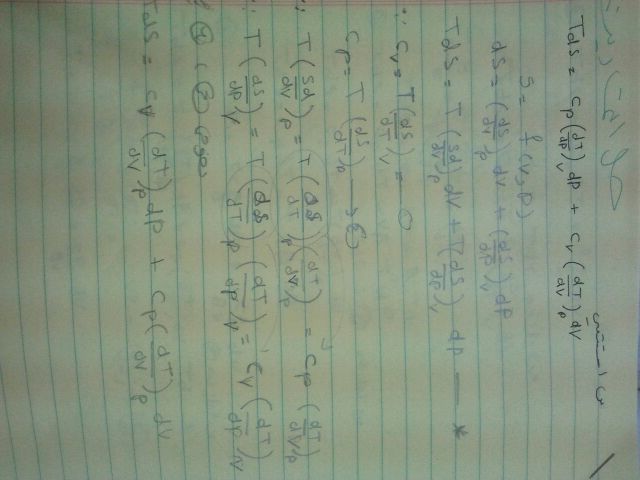 TdS = Cp(dT/dp)v dp + Cv(dT/dv)p dv
S = f(v,p)
dS = (dS/dv)p dv + (dS/dp)v dp
TdS = T(Sd/dv)p dv + T(dS/dp)v dp — *
∵ Cv = T(dS/dT)v = O
Cp = T(dS/dT)p →
∵ T(Sd/dv)p = T(dS/dT)p(dT/dv)p = Cp(dT/dv)p
∵ T(dS/dp)v = T(dS/dT)p(dT/dp)v = Cv(dT/dp)v
TdS = Cv(dT/dv)p dp + Cp(dT/dv)p dv